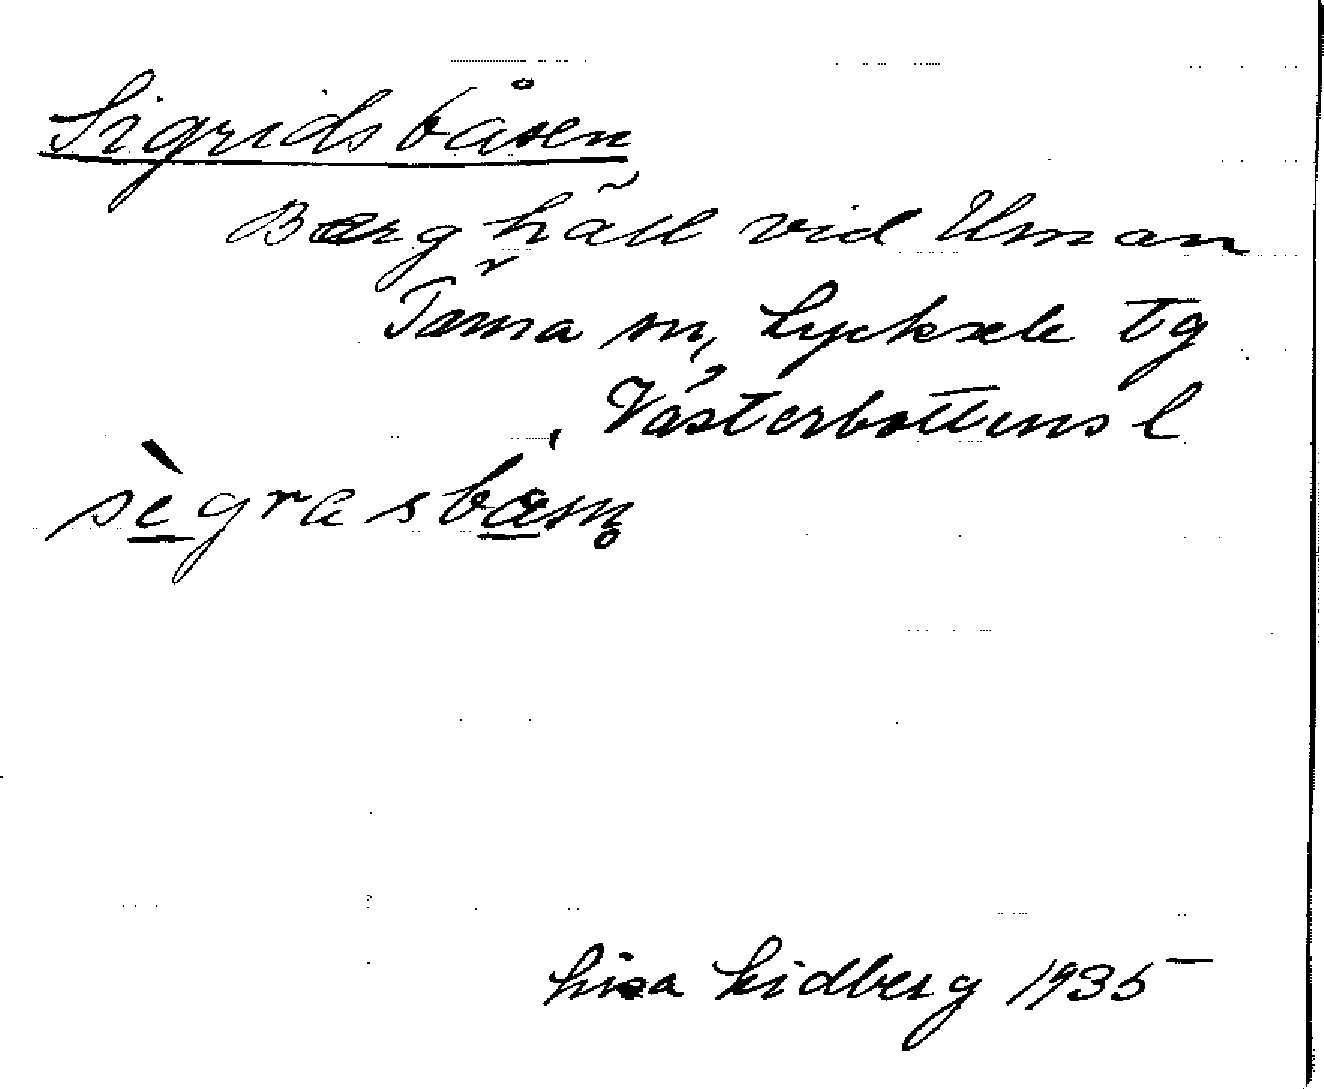 Sigridsbåsen
Berghäll vid Uman
Tärna sn, Lycksele tg
Västerbottens l
Lisa Lidberg 1935